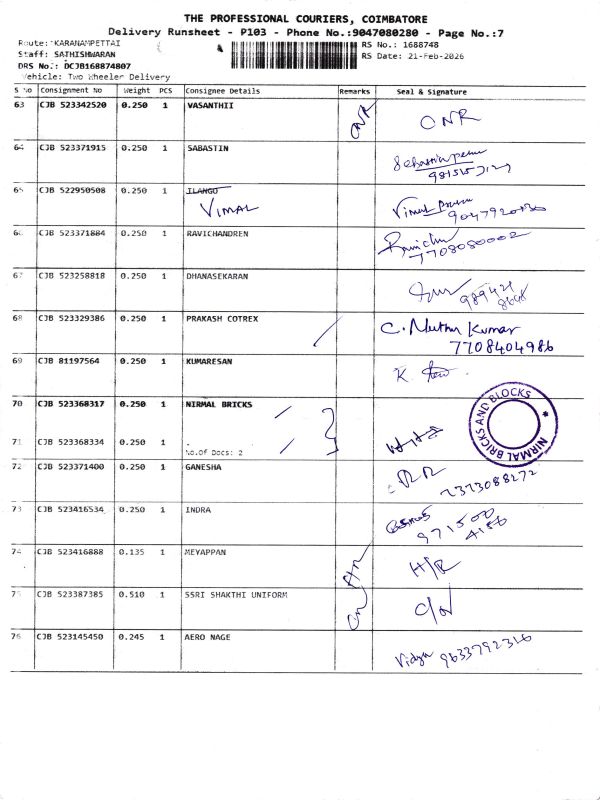 THE PROFESSIONAL COURIERS, COIMBATORE
Delivery Runsheet - P103 - Phone No.:9047080280 - Page No.:7
Route: KARANAMPETTAI
RS No.: 1688748
Staff: SATHISHWARAN
RS Date: 21-Feb-2026
DRS No.: DCJB168874807
Vehicle: Two Wheeler Delivery
S No Consignment No Weight PCS Consignee Details Remarks Seal & Signature
63 CJB 523342520 0.250 1 VASANTHII ONR ONR
64 CJB 523371915 0.250 1 SABASTIN
65 CJB 522950508 0.250 1 ILANGO
VIMAL Vimal
66 CJB 523371884 0.250 1 RAVICHANDREN
7708080002
67 CJB 523258818 0.250 1 DHANASEKARAN
68 CJB 523329386 0.250 1 PRAKASH COTREX C. Muthu Kumar
7708404986
69 CJB 81197564 0.250 1 KUMARESAN K.
70 CJB 523368317 0.250 1 NIRMAL BRICKS
NIRMAL BRICKS AND BLOCKS
71 CJB 523368334 0.250 1 .
No.Of Docs: 2
72 CJB 523371400 0.250 1 GANESHA
73 CJB 523416534 0.250 1 INDRA
74 CJB 523416888 0.135 1 MEYAPPAN H/R
75 CJB 523387385 0.510 1 SSRI SHAKTHI UNIFORM
76 CJB 523145450 0.245 1 AERO NAGE
Vidya 9633792316